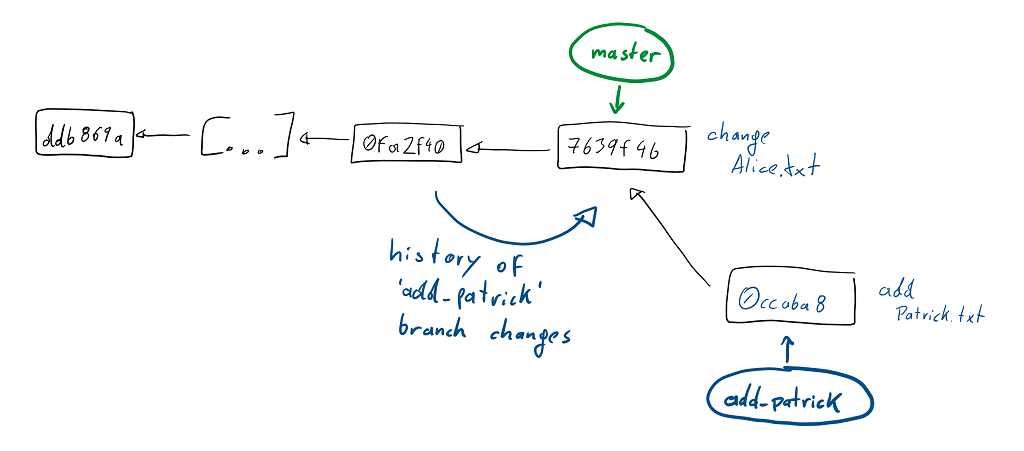 master
ddb869a
[...]
0fa2f40
7639f46
change
Alice.txt
history of
'add_patrick'
branch changes
0ccaba8
add
Patrick.txt
add_patrick